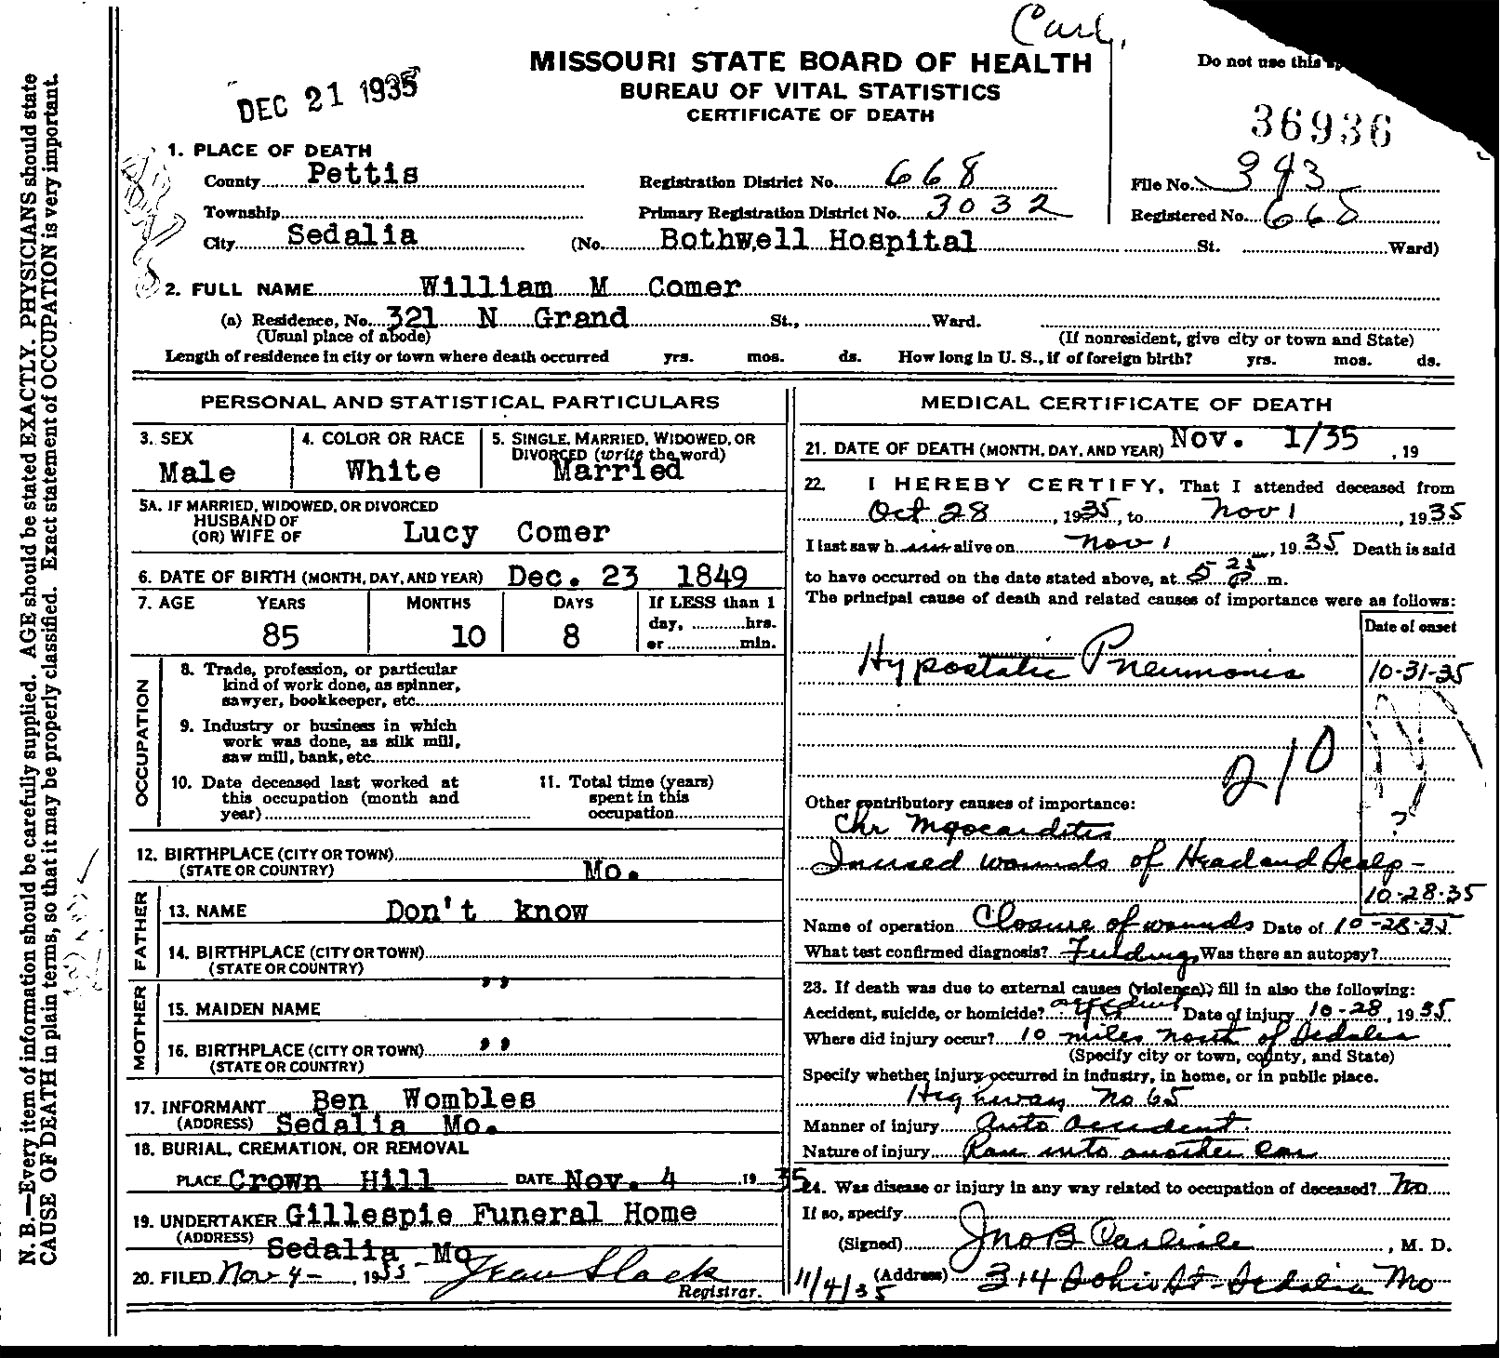 Carl,
MISSOURI STATE BOARD OF HEALTH
BUREAU OF VITAL STATISTICS
CERTIFICATE OF DEATH
Do not use this
DEC 21 1935
36936
1. PLACE OF DEATH
County Pettis
Registration District No. 668
File No. 393
Township
Primary Registration District No. 3032
Registered No.
City Sedalia (No. Bothwell Hospital St. Ward)
2. FULL NAME William M Comer
(a) Residence, No. 321 N Grand St., Ward.
(Usual place of abode) (If nonresident, give city or town and State)
Length of residence in city or town where death occurred yrs. mos. ds. How long in U. S., if of foreign birth? yrs. mos. ds.
PERSONAL AND STATISTICAL PARTICULARS
3. SEX Male
4. COLOR OR RACE White
5. SINGLE, MARRIED, WIDOWED, OR
DIVORCED (write the word)
Married
5A. IF MARRIED, WIDOWED, OR DIVORCED
HUSBAND OF
(OR) WIFE OF Lucy Comer
6. DATE OF BIRTH (MONTH, DAY, AND YEAR) Dec. 23 1849
7. AGE YEARS MONTHS DAYS If LESS than 1
day, hrs.
85 10 8 or min.
OCCUPATION
8. Trade, profession, or particular
kind of work done, as spinner,
sawyer, bookkeeper, etc.
9. Industry or business in which
work was done, as silk mill,
saw mill, bank, etc.
10. Date deceased last worked at
this occupation (month and
year)
11. Total time (years)
spent in this
occupation
12. BIRTHPLACE (CITY OR TOWN)
(STATE OR COUNTRY) Mo.
FATHER
13. NAME Don't know
14. BIRTHPLACE (CITY OR TOWN)
(STATE OR COUNTRY) ,,
MOTHER
15. MAIDEN NAME
16. BIRTHPLACE (CITY OR TOWN) ,,
(STATE OR COUNTRY)
17. INFORMANT Ben Wombles
(ADDRESS) Sedalia Mo.
18. BURIAL, CREMATION, OR REMOVAL
PLACE Crown Hill DATE Nov. 4 19 35
19. UNDERTAKER Gillespie Funeral Home
(ADDRESS) Sedalia Mo
20. FILED Nov 4 - , 1935 - Jean Slack
Registrar.
MEDICAL CERTIFICATE OF DEATH
21. DATE OF DEATH (MONTH, DAY, AND YEAR) Nov. 1/35 , 19
22. I HEREBY CERTIFY, That I attended deceased from
Oct 28 , 1935, to Nov 1 , 1935
I last saw him alive on Nov 1 , 1935 Death is said
to have occurred on the date stated above, at 5 25 P m.
The principal cause of death and related causes of importance were as follows:
Date of onset
Hypostatic Pneumonia 10-31-35
210
Other contributory causes of importance:
Chr Myocarditis ?
Incised wounds of Head and Scalp -
10-28-35
Name of operation Closure of wounds Date of 10-28-35
What test confirmed diagnosis? Findings Was there an autopsy?
23. If death was due to external causes (violence), fill in also the following:
Accident, suicide, or homicide? accident Date of injury 10-28, 1935
Where did injury occur? 10 miles north of Sedalia
(Specify city or town, county, and State)
Specify whether injury occurred in industry, in home, or in public place.
Highway No 65
Manner of injury Auto accident.
Nature of injury Ran into another car
24. Was disease or injury in any way related to occupation of deceased? No
If so, specify
(Signed) Jno B Carlisle , M. D.
11/4/35 (Address) 314 Ohio St - Sedalia Mo
N. B.—Every item of information should be carefully supplied. AGE should be stated EXACTLY. PHYSICIANS should state
CAUSE OF DEATH in plain terms, so that it may be properly classified. Exact statement of OCCUPATION is very important.